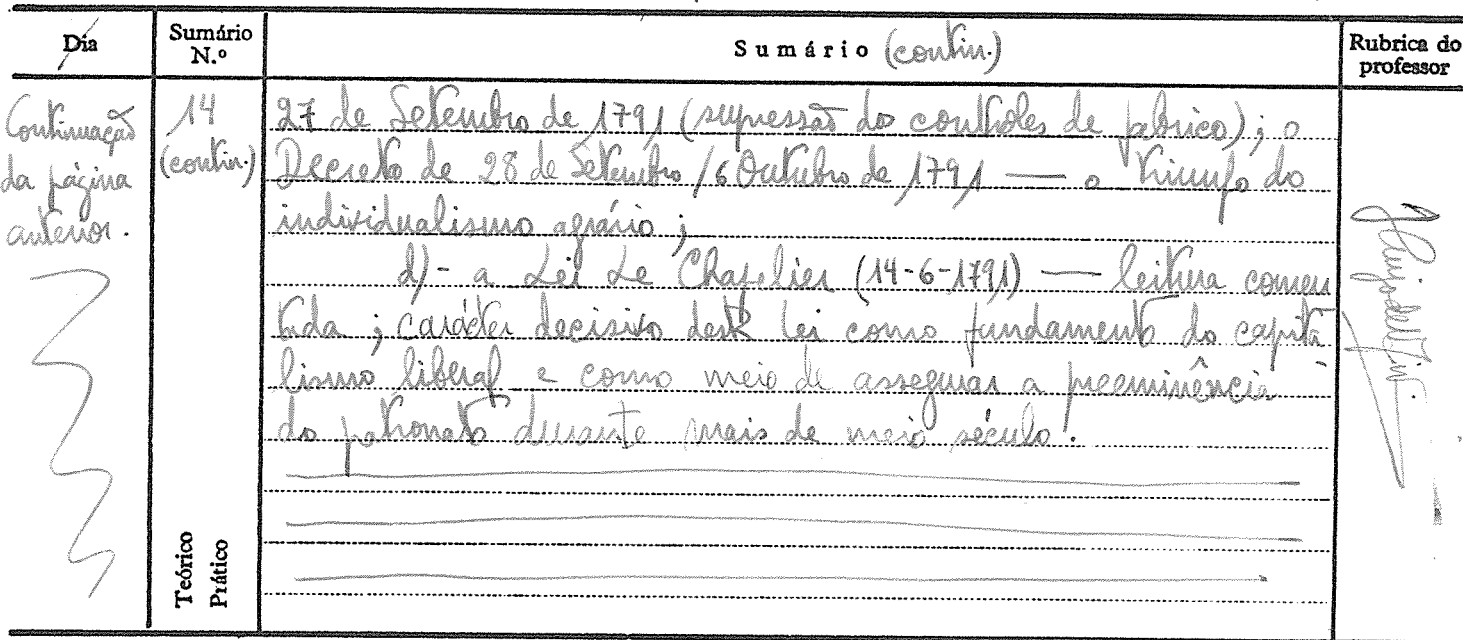 Dia
Sumário N.º
Sumário (contin.)
Rubrica do professor
Continuação da página anterior.
14 (contin.)
27 de Setembro de 1791 (supressão do controles de fabrico); o
Decreto de 28 de Setembro / 6 Outubro de 1791 — o triunfo do
individualismo agrário;
d) - a Lei Le Chapelier (14-6-1791) — leitura comen
tada; carácter decisivo desta lei como fundamento do capita
lismo liberal e como meio de assegurar a preeminência
do patronato durante mais de meio século.
Teórico
Prático